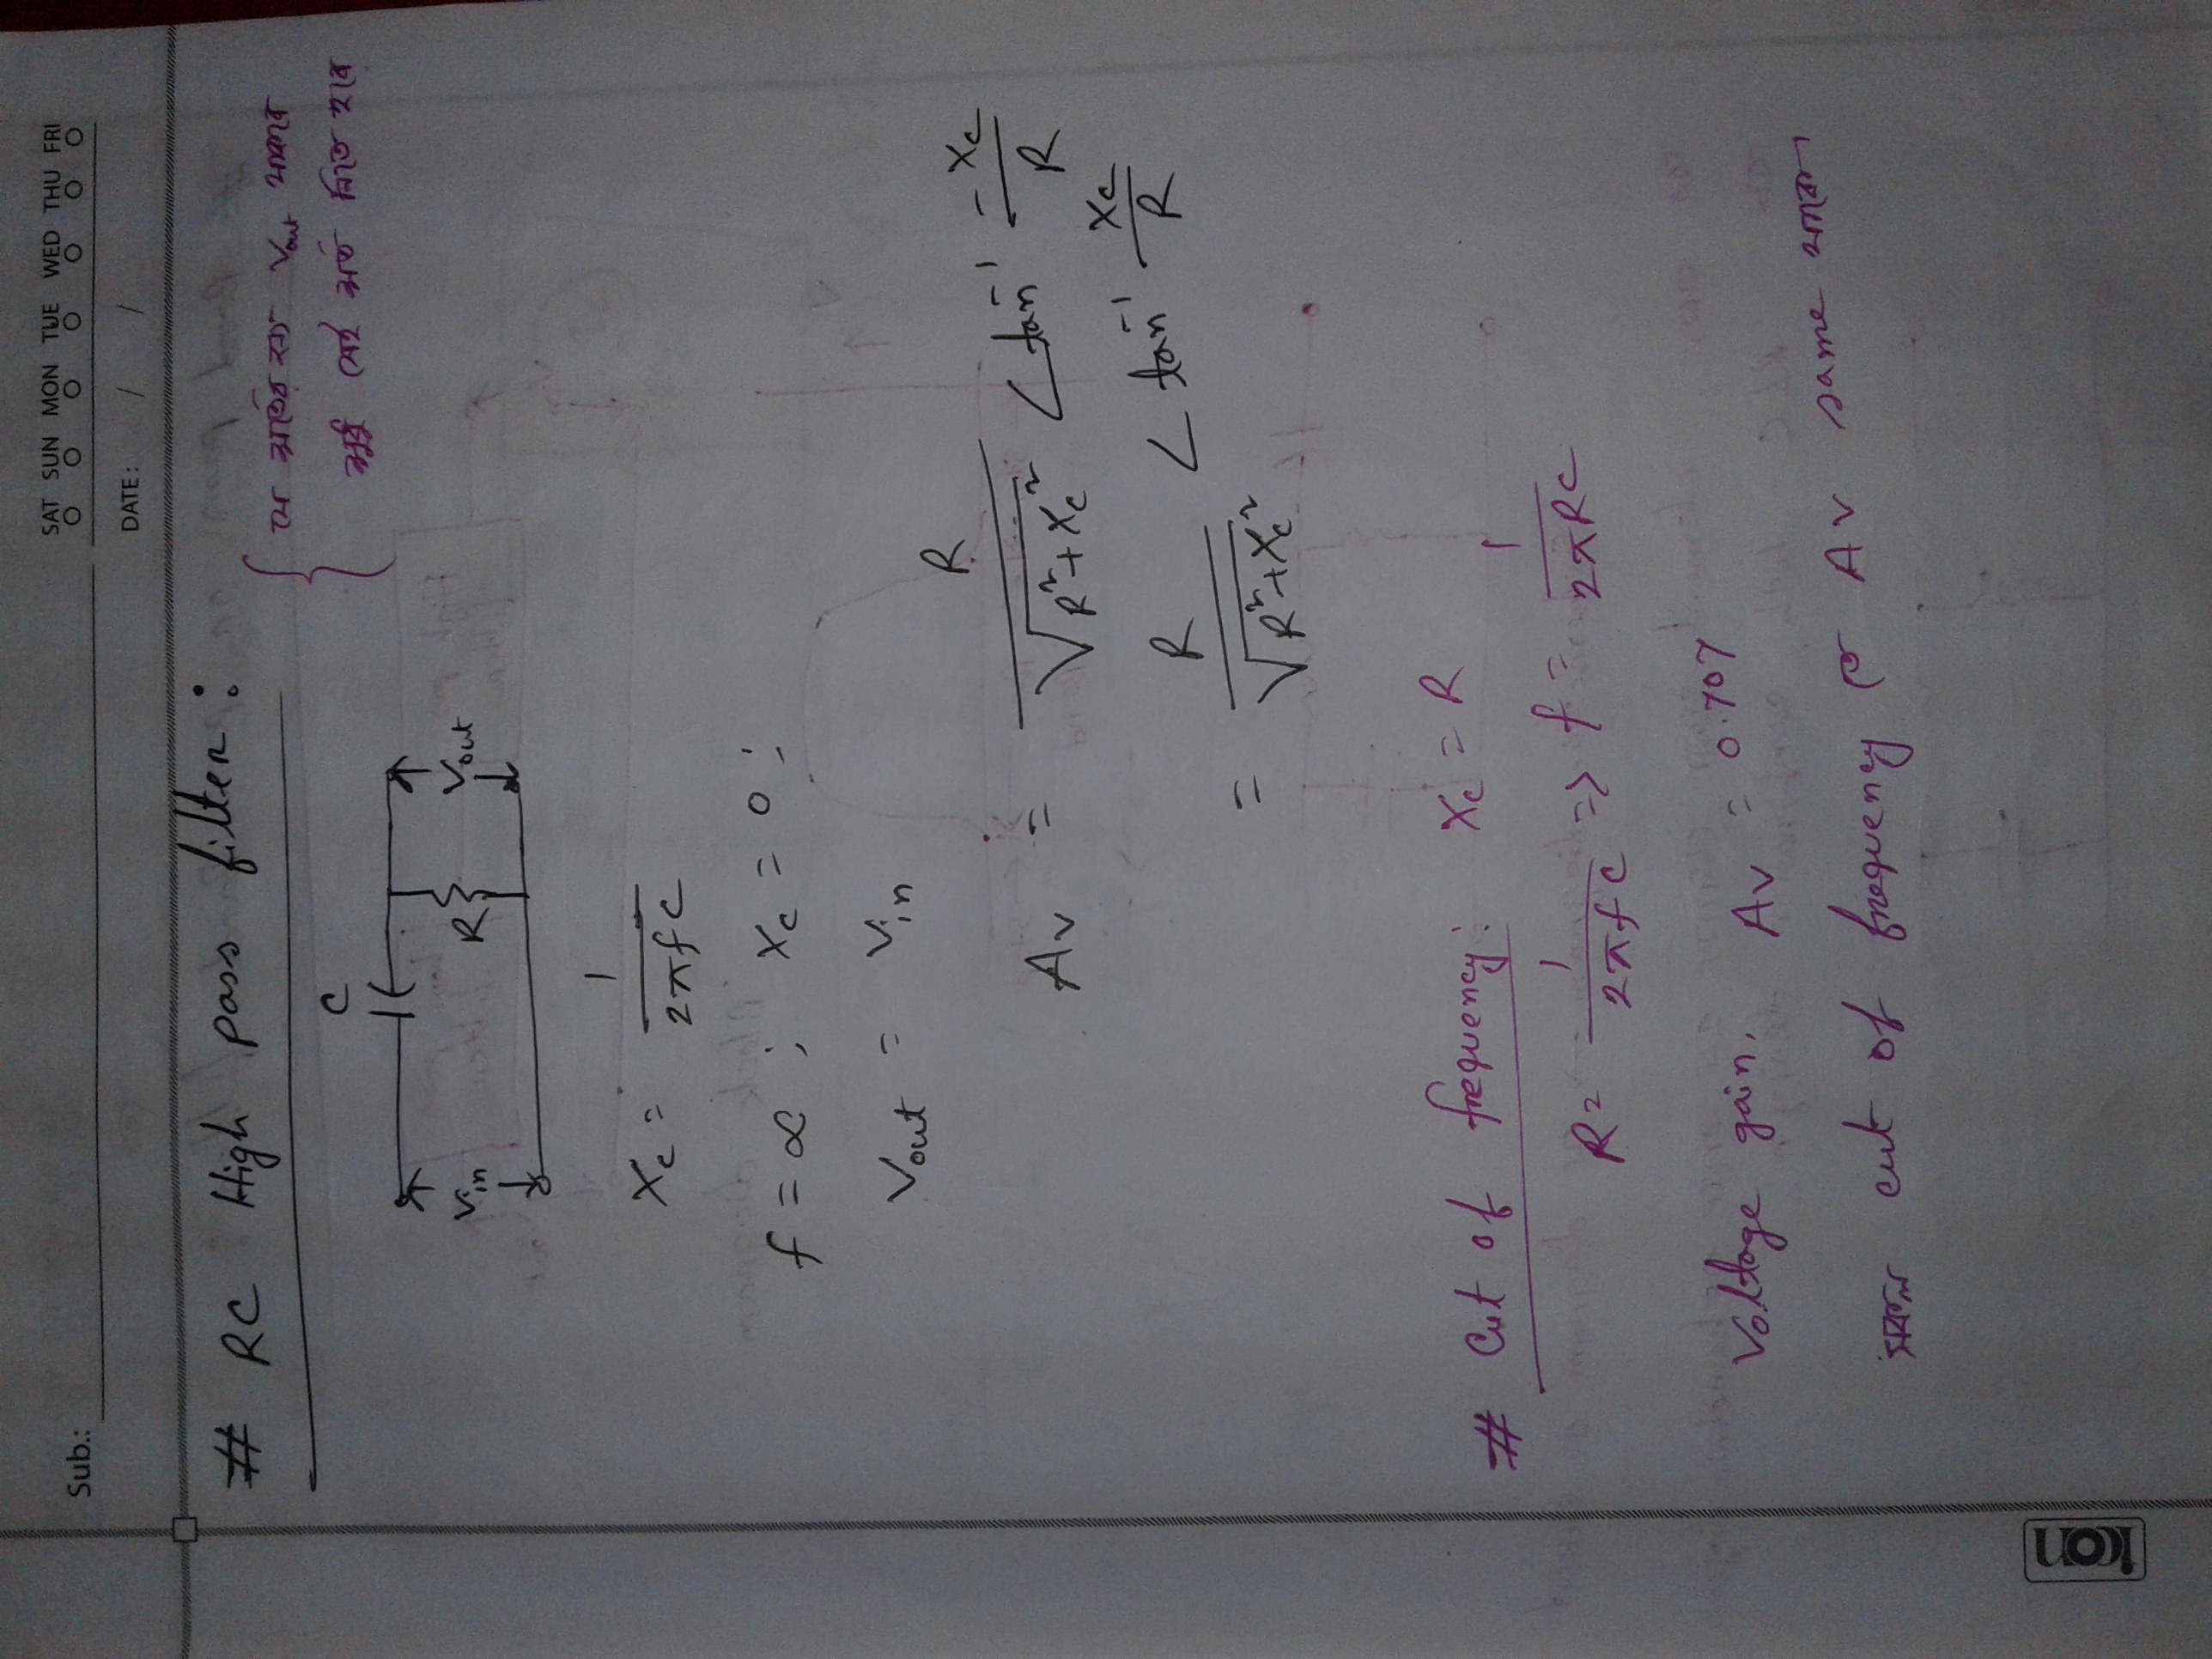 SAT SUN MON TUE WED THU FRI
Sub.:
DATE: / /
# RC High pass filter:
{ যে শর্তের জন্য Vout থাকবে
শুধু সেই শর্ত নিতে হবে
C
Vin
R
Vout
Xc = 1/2πfC
f = ∞ ; Xc = 0 ;
Vout = Vin
Av = R/√(R²+Xc²) ∠tan⁻¹ -Xc/R
= R/√(R²+Xc²) ∠tan⁻¹ Xc/R
# Cut of frequency: Xc = R
R = 1/2πfC => f = 1/2πRC
Voltage gain, Av = 0.707
সকল cut of frequency তে Av same থাকে।
icon